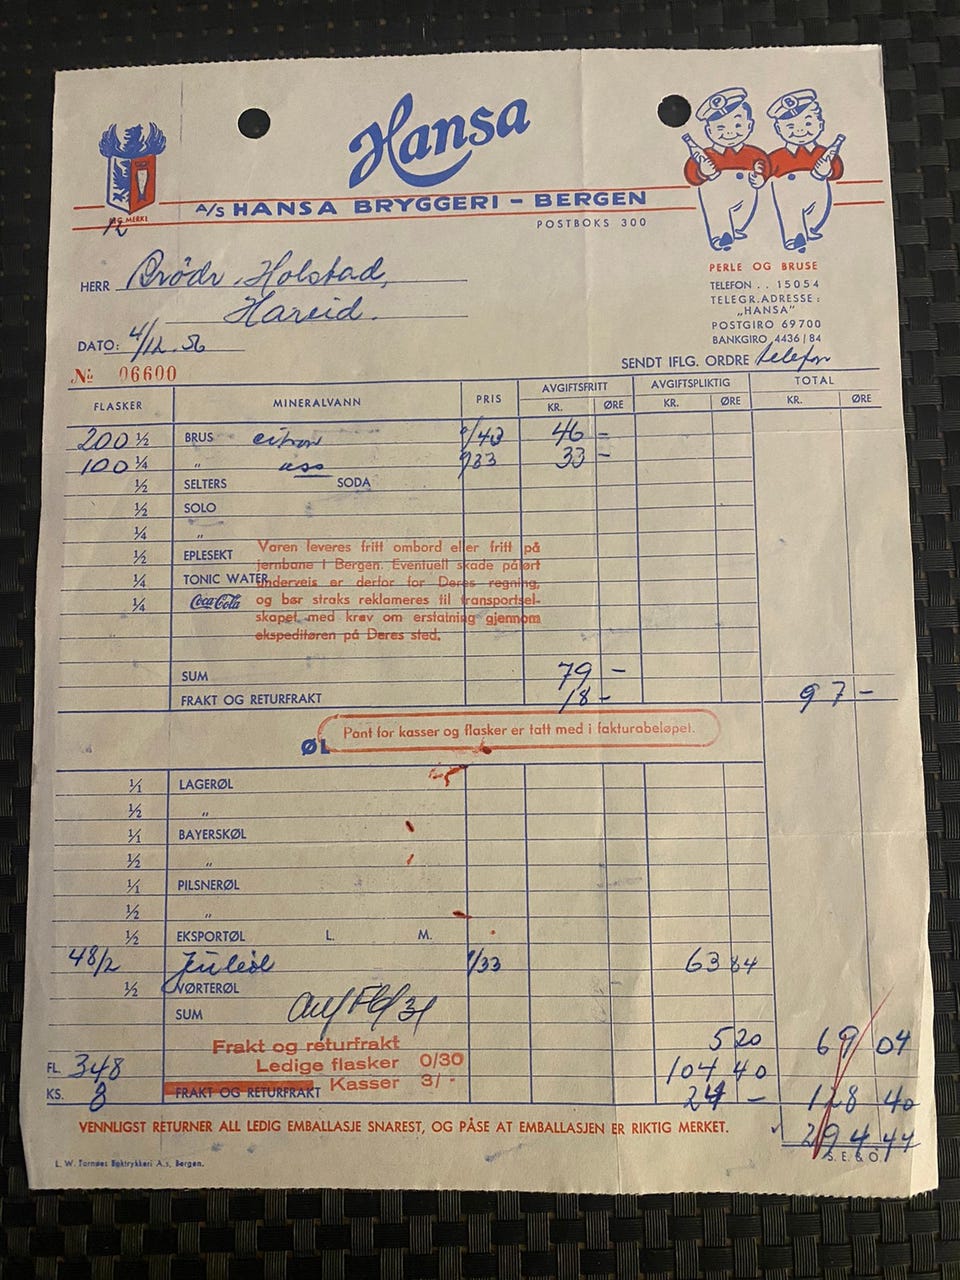 Hansa
A/S HANSA BRYGGERI - BERGEN
POSTBOKS 300
REG. MERKE
P B
PERLE OG BRUSE
TELEFON . . 15054
TELEGR.ADRESSE:
„HANSA"
POSTGIRO 69700
BANKGIRO 4436/84
HERR Brödr. Holstad,
Hareid.
DATO: 4/12.56
SENDT IFLG. ORDRE telefon
№ 06600
FLASKER MINERALVANN PRIS AVGIFTSFRITT AVGIFTSPLIKTIG TOTAL
KR. ØRE KR. ØRE KR. ØRE
200 ½ BRUS citron 46 -
100 ¼ „ ass 33 -
½ SELTERS SODA
½ SOLO
¼ „
½ EPLESEKT
¼ TONIC WATER
¼ Coca-Cola
Varen leveres fritt ombord eller fritt på
jernbane i Bergen. Eventuell skade påført
underveis er derfor for Deres regning,
og bør straks reklameres til transportsel-
skapet med krav om erstatning gjennom
ekspeditøren på Deres sted.
SUM 79 -
FRAKT OG RETURFRAKT 18 - 97 -
Pant for kasser og flasker er tatt med i fakturabeløpet.
ØL
1/1 LAGERØL
½ „
1/1 BAYERSKØL
½ „
1/1 PILSNERØL
½ „
½ EKSPORTØL L. M.
48/2 Juleöl 1/33 63 84
½ VØRTERØL
SUM
Frakt og returfrakt 5 20 69 04
FL. 348 Ledige flasker 0/30 104 40
KS. 8 FRAKT OG RETURFRAKT Kasser 3/- 24 - 128 40
VENNLIGST RETURNER ALL LEDIG EMBALLASJE SNAREST, OG PÅSE AT EMBALLASJEN ER RIKTIG MERKET.
294 44
S. E. & O.
L. W. Tornøes Boktrykkeri A.s, Bergen.